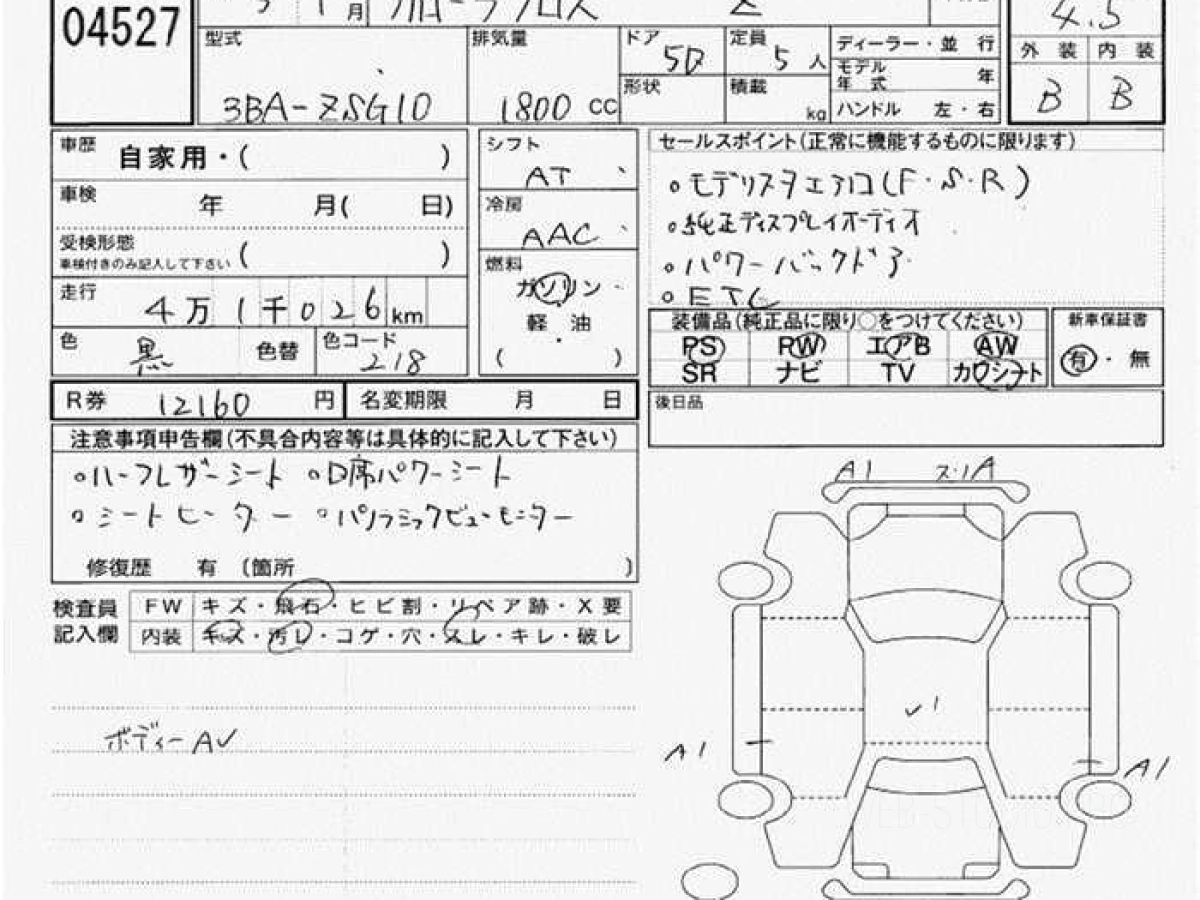 04527
月 カローラクロス Z
4.5
型式
3BA-ZSG10
排気量
1800 cc
ドア
5D
形状
定員
5 人
積載
kg
ディーラー・並 行
モデル
年 式 年
ハンドル 左・右
外 装 内 装
B B
車歴
自家用・( )
車検
年 月( 日)
受検形態
車検付きのみ記入して下さい ( )
走行
4万1千026km
色
黒 色替
色コード
218
シフト
AT
冷房
AAC
燃料
ガソリン
軽 油
( )
セールスポイント(正常に機能するものに限ります)
○モデリスタエアロ(F・S・R)
○純正ディスプレイオーディオ
○パワーバックドア
○ETC
装備品(純正品に限り○をつけてください)
PS PW エアB AW
SR ナビ TV カワシート
新車保証書
有・無
R券 12160 円
名変期限 月 日
後日品
注意事項申告欄(不具合内容等は具体的に記入して下さい)
○ハーフレザーシート ○D席パワーシート
○シートヒーター ○パノラミックビューモニター
修復歴 有 〔箇所 〕
検査員
記入欄
FW キズ・飛石・ヒビ割・リペア跡・X要
内装 キズ・汚レ・コゲ・穴・スレ・キレ・破レ
ボディーAV
A1 ス・リA
✓1
A1
A1